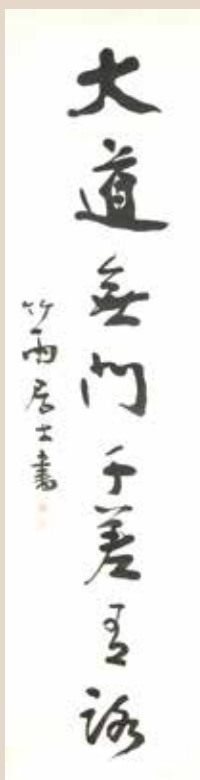 大道無門千差有路
竹雨居士書